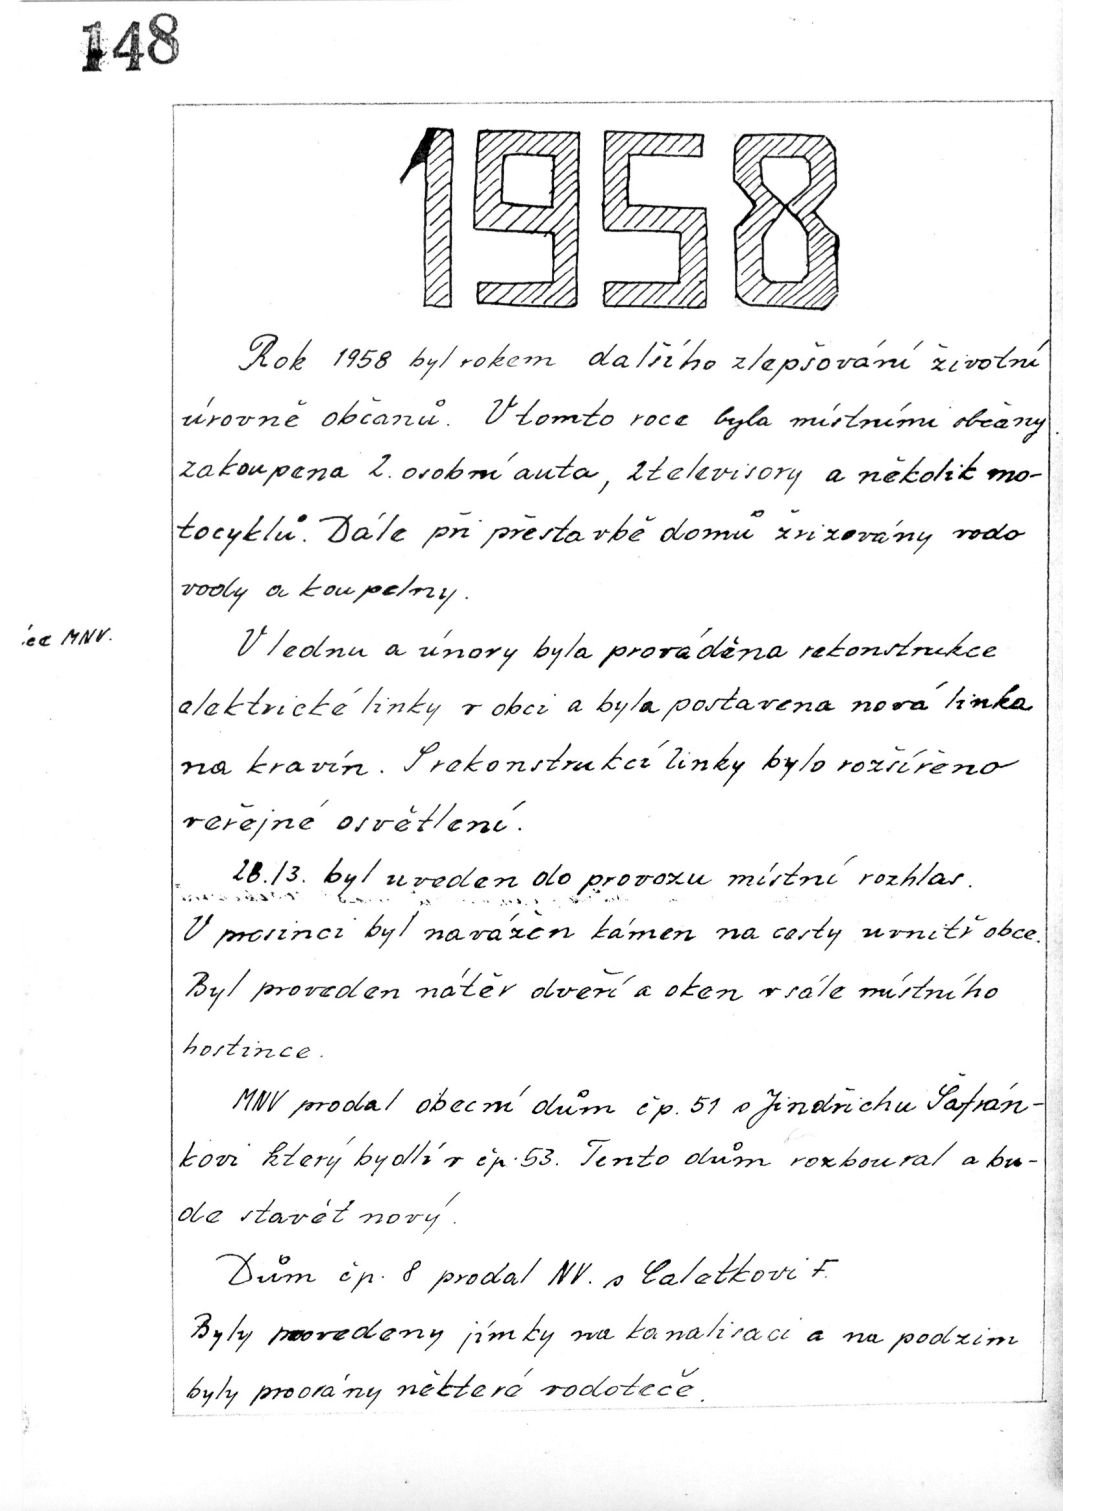 148
1958
Rok 1958 byl rokem dalšího zlepšování životní
úrovně občanů. V tomto roce byla místními občany
zakoupena 2. osobní auta, 2 televisory a několik mo-
tocyklů. Dále při přestavbě domů zrizovány vodo
vody a koupelny.
ec MNV.
V lednu a únory byla prováděna rekonstrukce
elektrické linky v obci a byla postavena nová linka
na kravín. S rekonstrukcí linky bylo rozšířeno
veřejné osvětlení.
28./3. byl uveden do provozu místní rozhlas.
V prosinci byl navážen kámen na cesty uvnitř obce.
Byl proveden nátěr dveří a oken v sále místního
hostince.
MNV prodal obecní dům čp. 51 s Jindřichu Šafrán-
kovi který bydlí v čp. 53. Tento dům rozboural a bu-
de stavět nový.
Dům čp. 8 prodal NV. s Caletkovi F.
Byly provedeny jímky na kanalisaci a na podzim
byly proorány některé vodoteče.